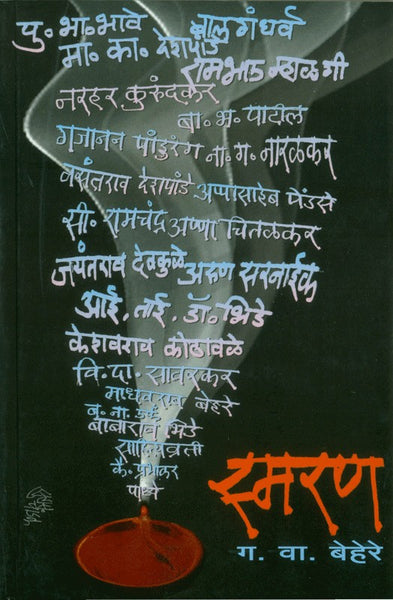 पु. भा. भावे बाल गंधर्व
मा. का. देशपांडे
रामभाऊ म्हाळगी
नरहर कुरुंदकर
बा. भ. पाटील
गजानन पांडुरंग ना. ग. नारळकर
वसंतराव देशपांडे अप्पासाहेब पेंडसे
सी. रामचंद्र अण्णा चितळकर
जयंतराव देवकुळे अरुण सरनाईक
आई. ताई. डॉ. भिडे
केशवराव कोठावळे
वि. दा. सावरकर
माधवराव बेहेरे
बाबाराव भिडे
के. प्रभाकर
पाध्ये
स्मरण
ग. वा. बेहेरे